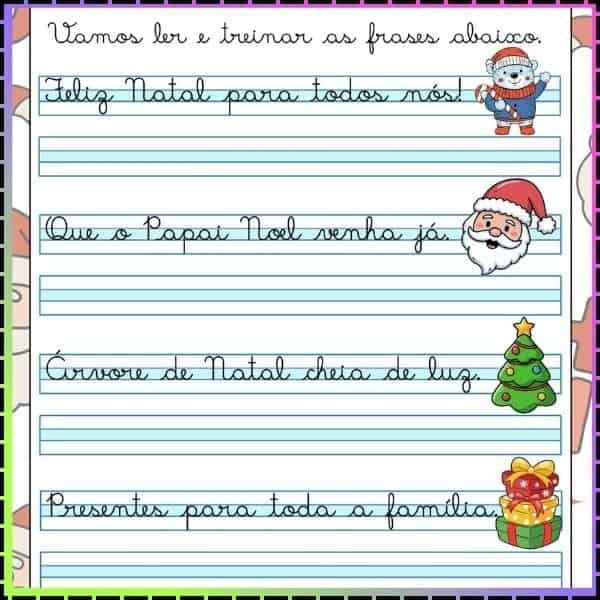 Vamos ler e treinar as frases abaixo.
Feliz Natal para todos nós!
Que o Papai Noel venha já.
Árvore de Natal cheia de luz.
Presentes para toda a família.